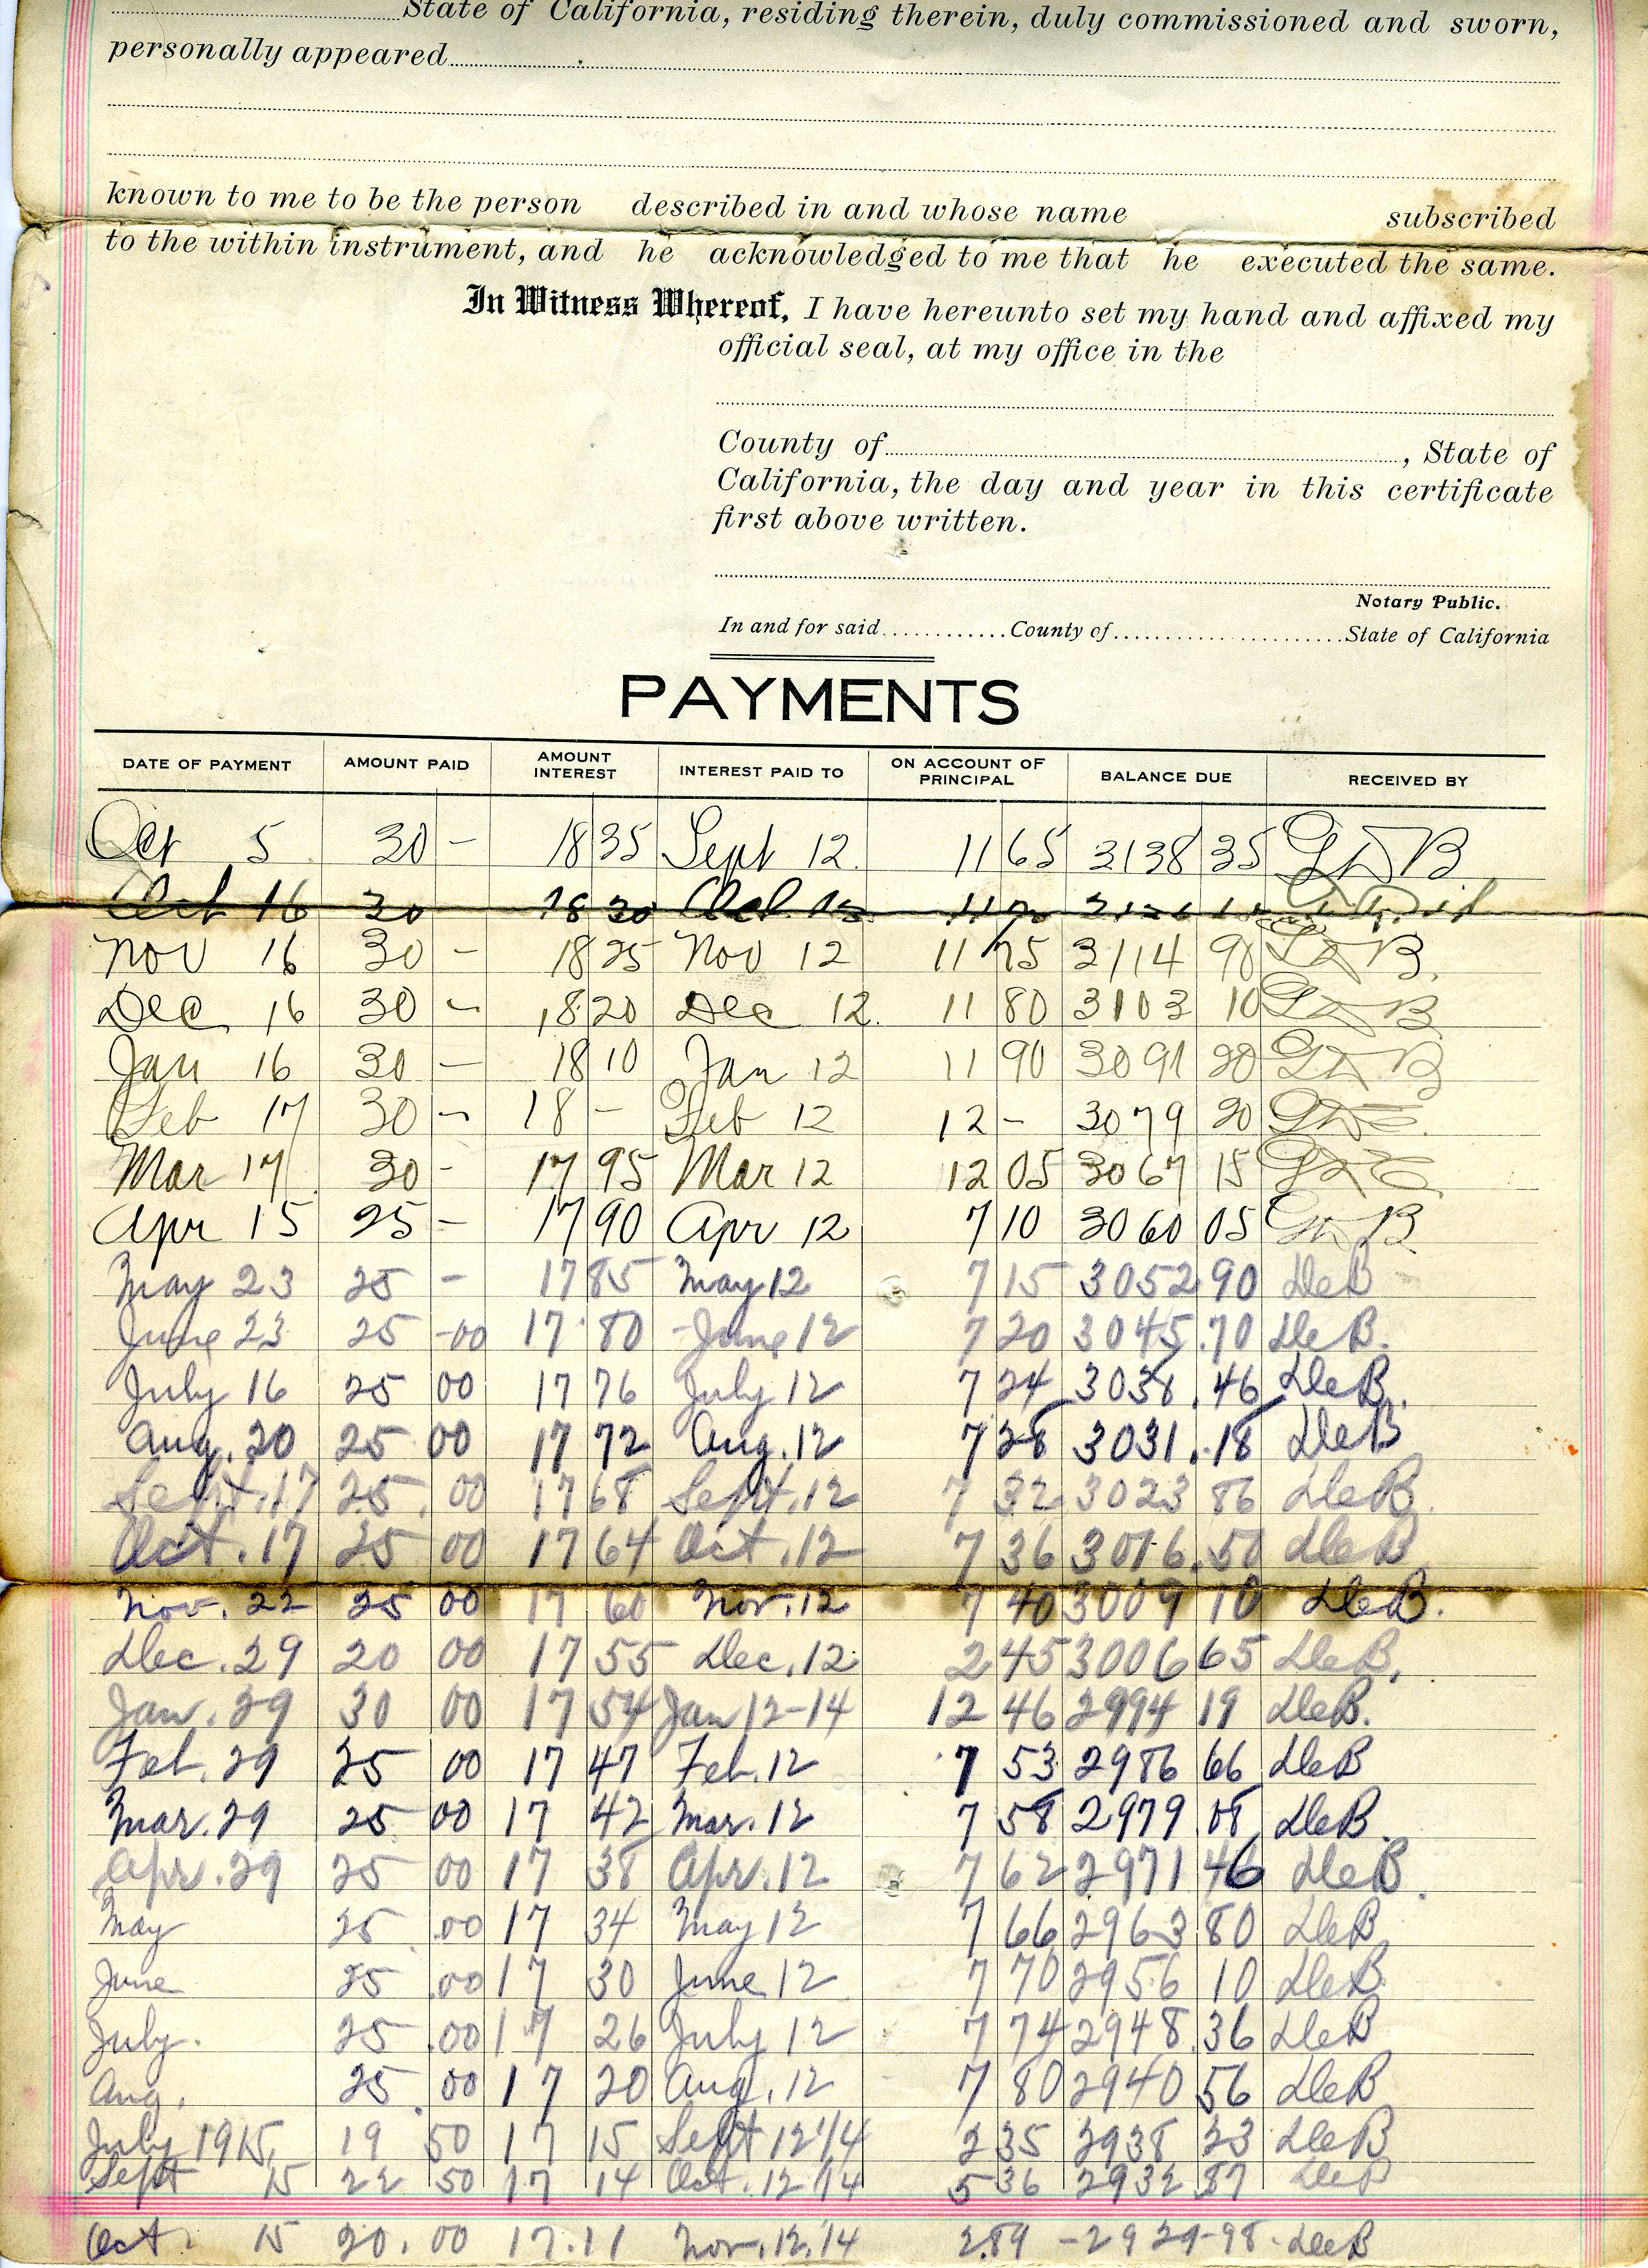 State of California, residing therein, duly commissioned and sworn,
personally appeared
known to me to be the person described in and whose name subscribed
to the within instrument, and he acknowledged to me that he executed the same.
In Witness Whereof, I have hereunto set my hand and affixed my
official seal, at my office in the
County of , State of
California, the day and year in this certificate
first above written.
Notary Public.
In and for said County of State of California
PAYMENTS
DATE OF PAYMENT AMOUNT PAID AMOUNT INTEREST INTEREST PAID TO ON ACCOUNT OF PRINCIPAL BALANCE DUE RECEIVED BY
Oct 5 30 - 18 35 Sept 12 11 65 3138 35
Oct 16 30 18 30 Oct 12 11 70
Nov 16 30 - 18 25 Nov 12 11 75 3114 90
Dec 16 30 - 18 20 Dec 12 11 80 3103 10
Jan 16 30 - 18 10 Jan 12 11 90 3091 20
Feb 17 30 - 18 - Feb 12 12 - 3079 20
Mar 17 30 - 17 95 Mar 12 12 05 3067 15
Apr 15 25 - 17 90 Apr 12 7 10 3060 05
May 23 25 - 17 85 May 12 7 15 3052 90 DeB
June 23 25 -00 17.80 June 12 7 20 3045.70 DeB.
July 16 25 00 17 76 July 12 7 24 3038.46 DeB.
Aug. 20 25 00 17 72 Aug. 12 7 28 3031.18 DeB
Sept. 17 25.00 17 68 Sept. 12 7 32 3023 86 DeB.
Oct. 17 25 00 17 64 Oct. 12 7 36 3016.50 DeB
Nov. 22 25 00 17 60 Nov. 12 7 40 3009 10 DeB.
Dec. 29 20 00 17 55 Dec. 12 2 45 3006 65 DeB.
Jan. 29 30 00 17 54 Jan 12-14 12 46 2994 19 DeB.
Feb. 29 25 00 17 47 Feb. 12 7 53 2986 66 DeB
Mar. 29 25 00 17 42 Mar. 12 7 58 2979.08 DeB.
Apr. 29 25 00 17 38 Apr. 12 7 62 2971 46 DeB.
May 25.00 17 34 May 12 7 66 2963 80 DeB
June 25.00 17 30 June 12 7 70 2956 10 DeB.
July. 25.00 17 26 July 12 7 74 2948.36 DeB
Aug. 25.00 17 20 Aug. 12 7 80 2940 56 DeB
July 1915, 19 50 17 15 Sept 12 '14 2 35 2938 23 DeB
Sept 15 22 50 17 14 Oct. 12 '14 5 36 2932 87 DeB
Oct. 15 20.00 17.11 Nov. 12, '14 2.89 -2929-98. DeB